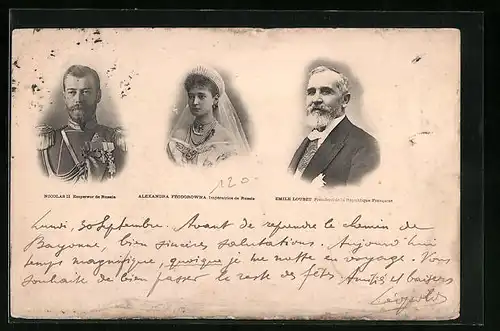 NICOLAS II Empereur de Russie
ALEXANDRA FEODOROWNA Impératrice de Russie
EMILE LOUBET Président de la République Française
120.-
Lundi, 30 Septembre. Avant de reprendre le chemin de
Bayonne, bien sincères salutations. Aujourd'hui
temps magnifique, quoique je me mette en voyage. Vous
souhaite de bien passer le reste des fêtes. Amitiés et baisers
Léopold